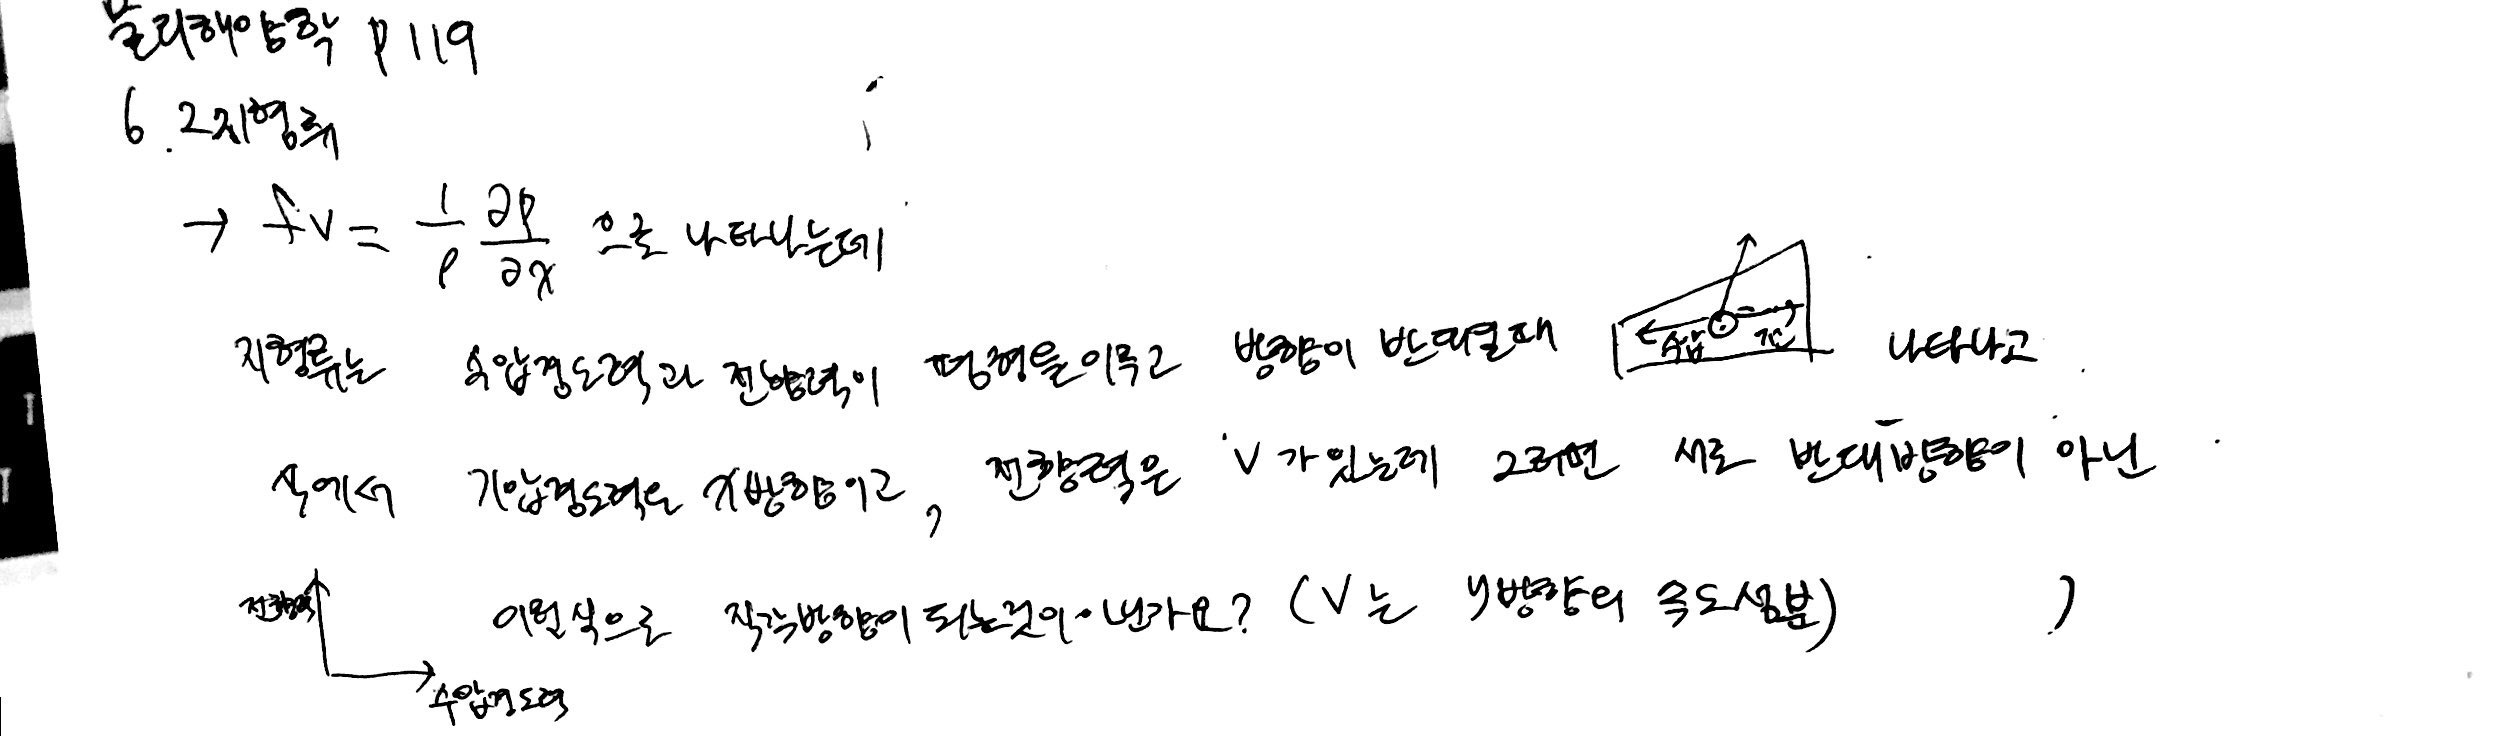 물리해양학 p119
6.2 지형류
→ fv = 1/ρ ∂p/∂x 으로 나타나는데
지형류는 수압경도력과 전향력이 평형을 이루고 방향이 반대일때 수압 전 나타나고
식에서 기압경도력은 x방향이고, 전향력은 v가 있는데 그러면 서로 반대방향이 아닌
전향력 이런식으로 직각방향이 되는것이 아닌가요? (v는 y방향의 속도성분)
수압경도력